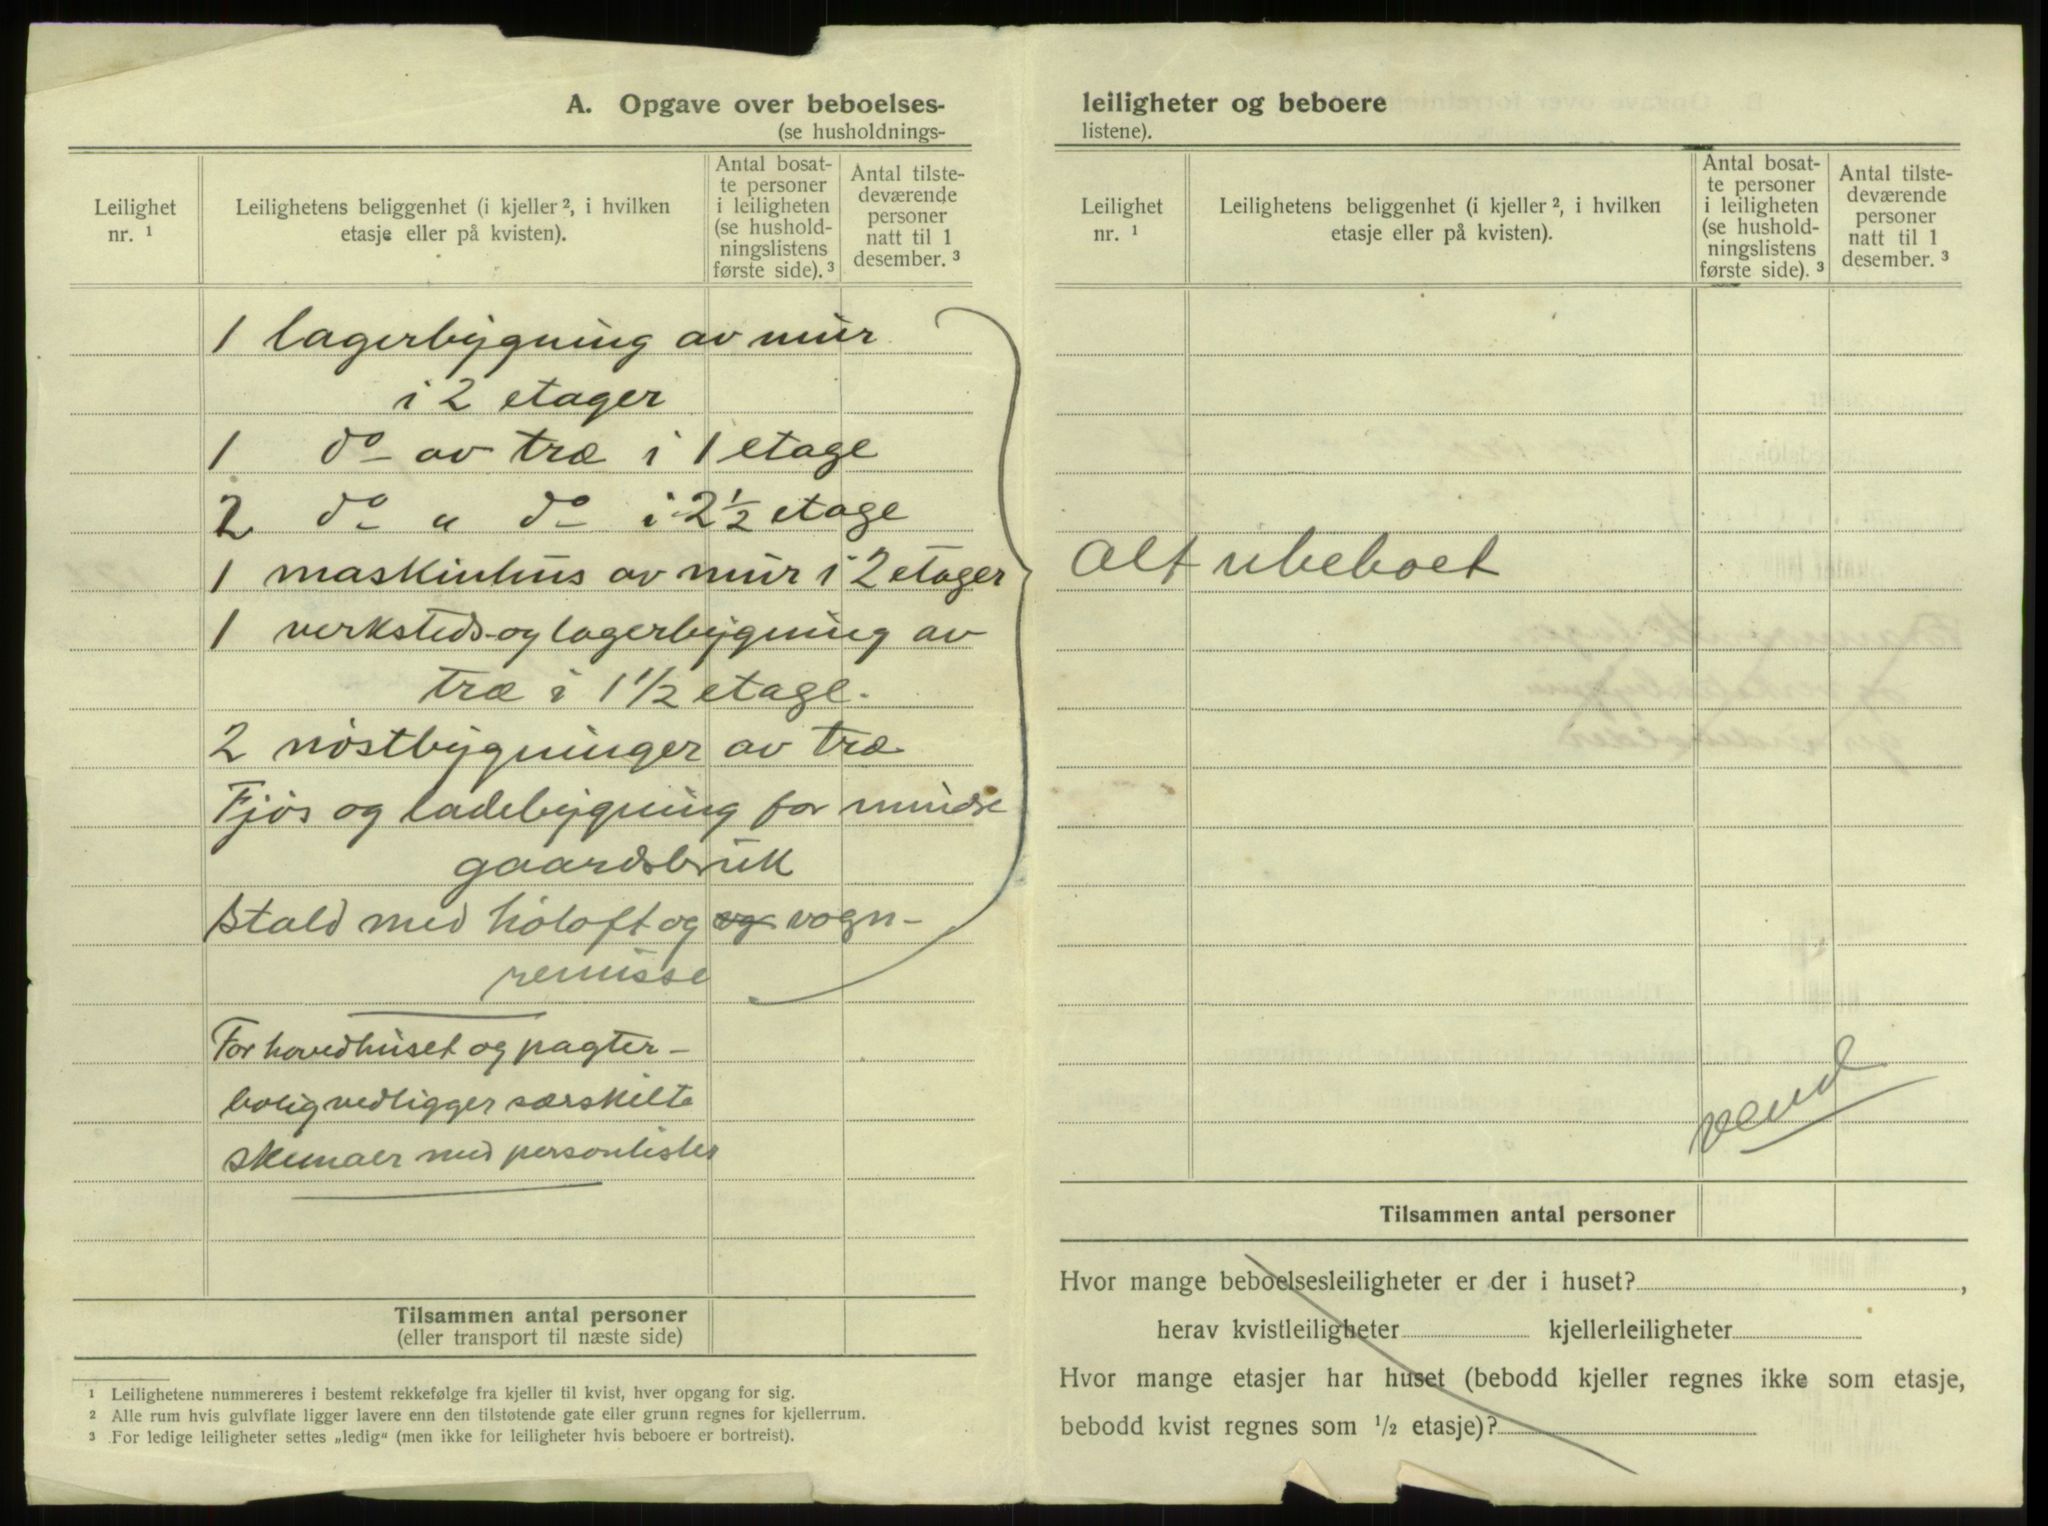 A. Opgave over beboelses-
(se husholdnings-
Leilighet
nr. ¹
Leilighetens beliggenhet (i kjeller ², i hvilken
etasje eller på kvisten).
Antal bosat-
te personer
i leiligheten
(se hushold-
ningslistens
første side). ³
Antal tilste-
deværende
personer
natt til 1
desember. ³
1 lagerbygning av mur
i 2 etager
1 do av træ i 1 etage
2 do " do i 2½ etage
1 maskinhus av mur i 2 etager
1 verksteds- og lagerbygning av
træ i 1 1/2 etage.
2 nøstbygninger av træ
Fjøs og ladebygning for mindre
gaardsbruk
Stald med høloft og og vogn-
remisse
For hovedhuset og pagter-
bolig vedligger særskilte
skemaer med personlister
Tilsammen antal personer
(eller transport til næste side)
¹ Leilighetene nummereres i bestemt rekkefølge fra kjeller til kvist, hver opgang for sig.
² Alle rum hvis gulvflate ligger lavere enn den tilstøtende gate eller grunn regnes for kjellerrum.
³ For ledige leiligheter settes „ledig" (men ikke for leiligheter hvis beboere er bortreist).
leiligheter og beboere
listene).
Leilighet
nr. ¹
Leilighetens beliggenhet (i kjeller ², i hvilken
etasje eller på kvisten).
Antal bosat-
te personer
i leiligheten
(se hushold-
ningslistens
første side). ³
Antal tilste-
deværende
personer
natt til 1
desember. ³
Alt ubeboet
vend
Tilsammen antal personer
Hvor mange beboelsesleiligheter er der i huset?
herav kvistleiligheter kjellerleiligheter
Hvor mange etasjer har huset (bebodd kjeller regnes ikke som etasje,
bebodd kvist regnes som ½ etasje)?